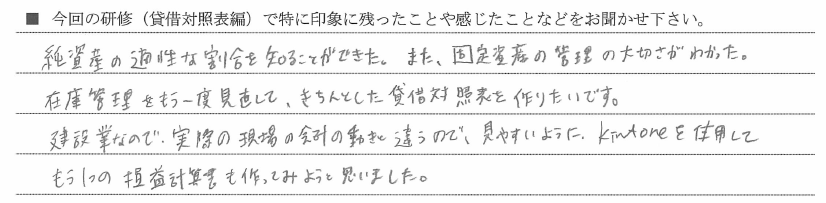 ■ 今回の研修（貸借対照表編）で特に印象に残ったことや感じたことなどをお聞かせ下さい。
純資産の適性な割合を知ることができた。また、固定資産の管理の大切さがわかった。
在庫管理をもう一度見直して、きちんとした貸借対照表を作りたいです。
建設業なので、実際の現場の会計の動きと違うので、見やすいように、kintoneを使用して
もう1つの損益計算書も作ってみようと思いました。